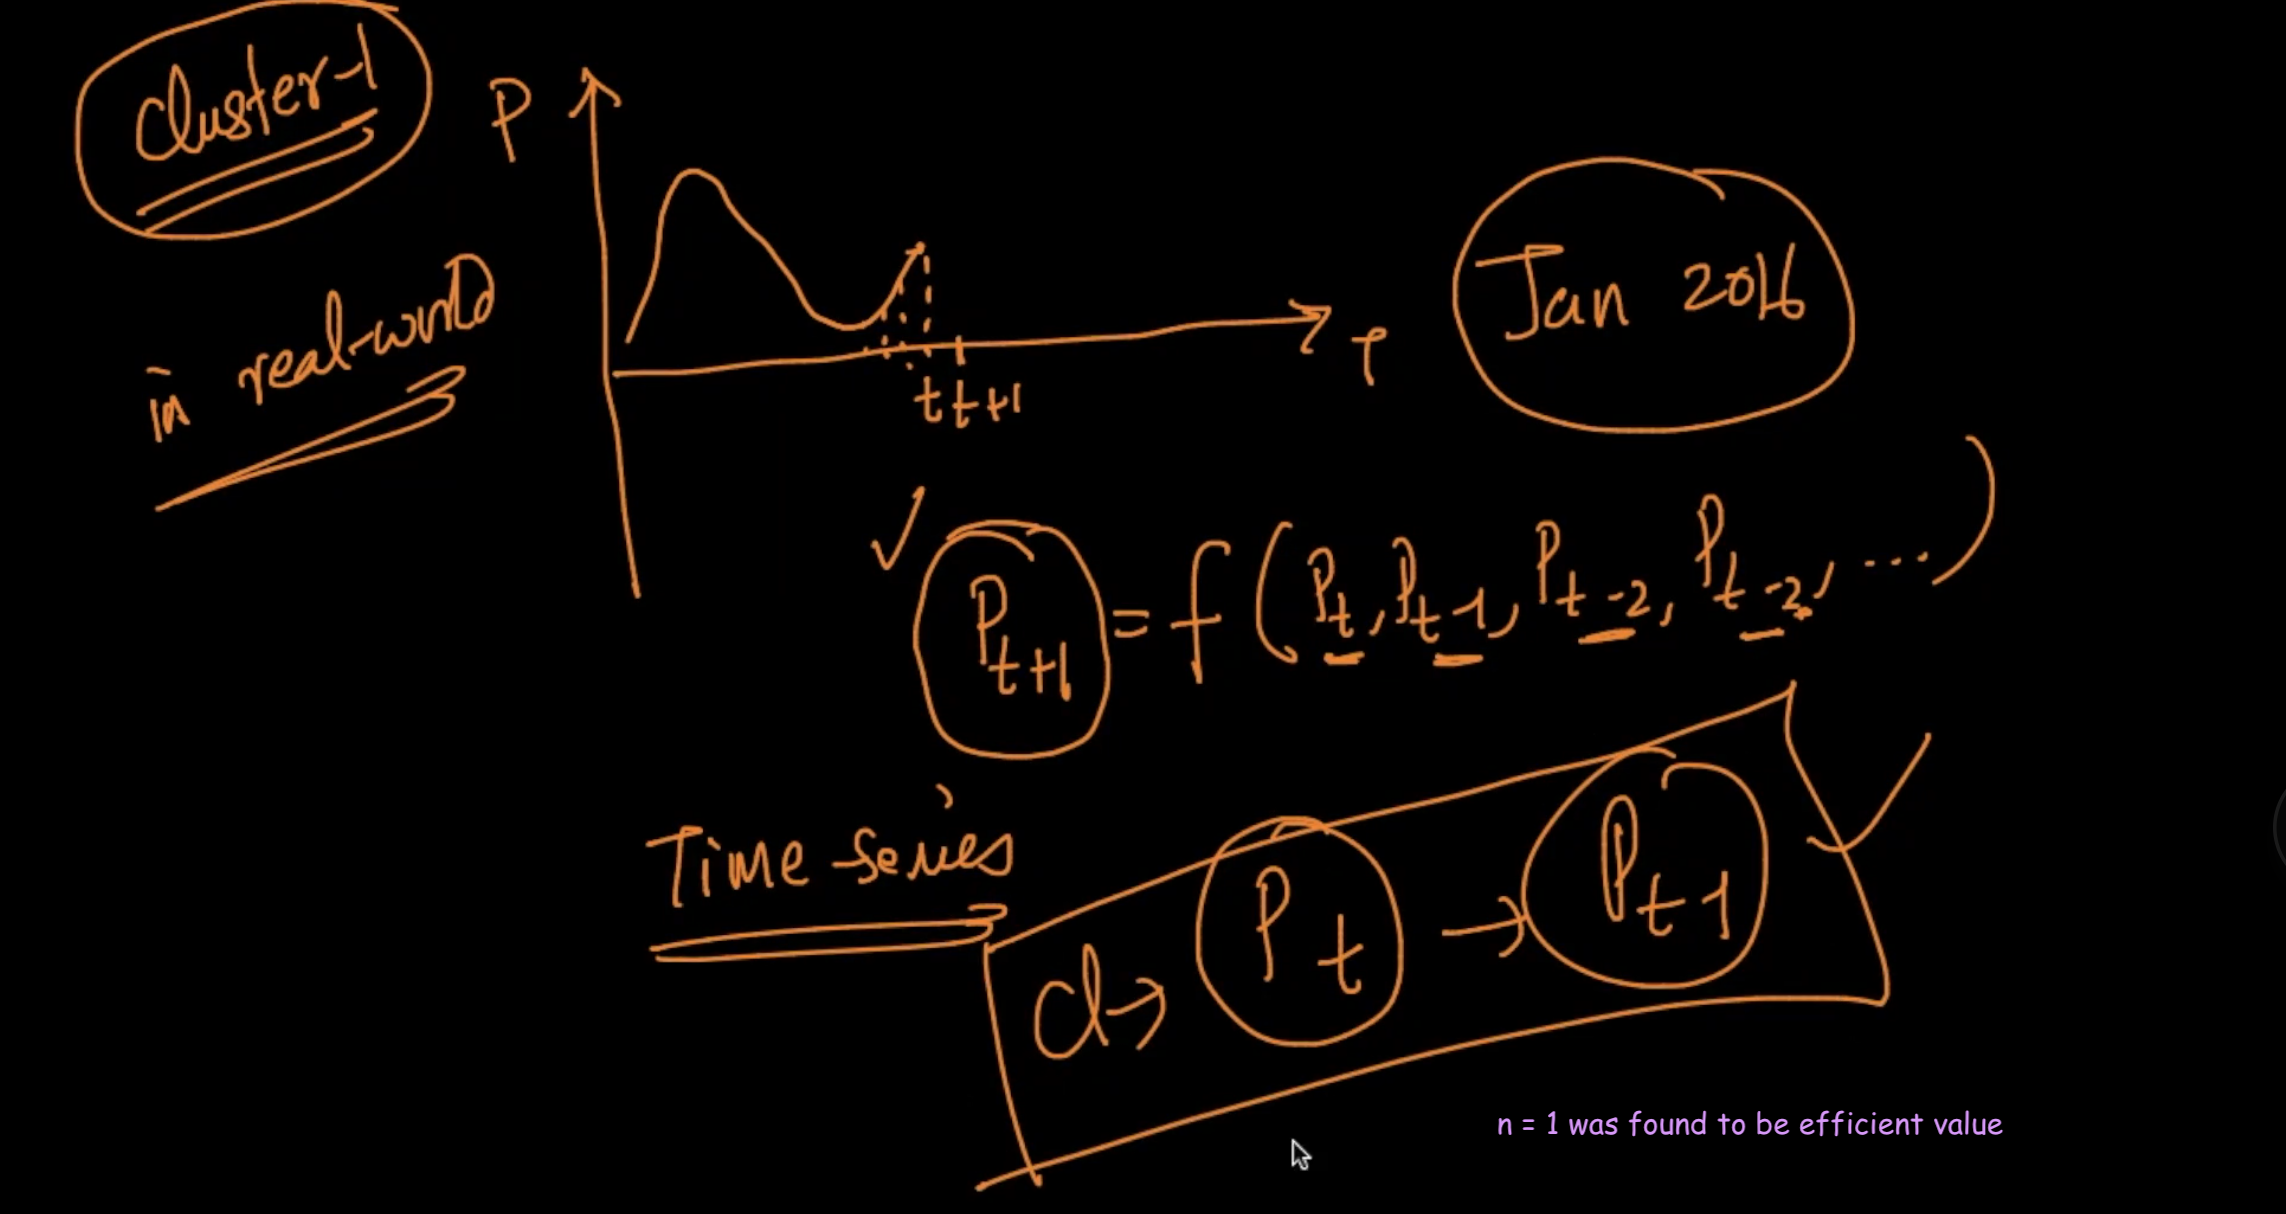 Cluster-1
P
in real-world
t t+1
T
Jan 2016
P_{t+1} = f(P_t, P_{t-1}, P_{t-2}, P_{t-2}, ...)
Time-series
Cl → P_t → P_{t-1}
n = 1 was found to be efficient value